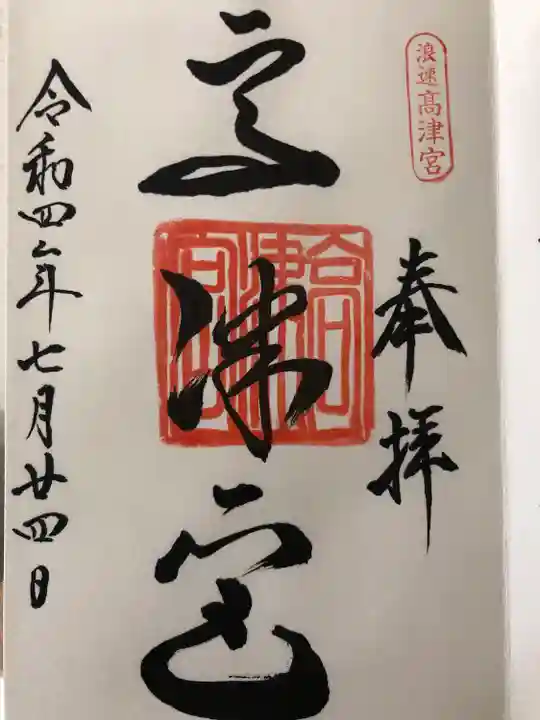 浪速高津宮
奉拝
高津宮
高津宮
令和四年七月廿四日